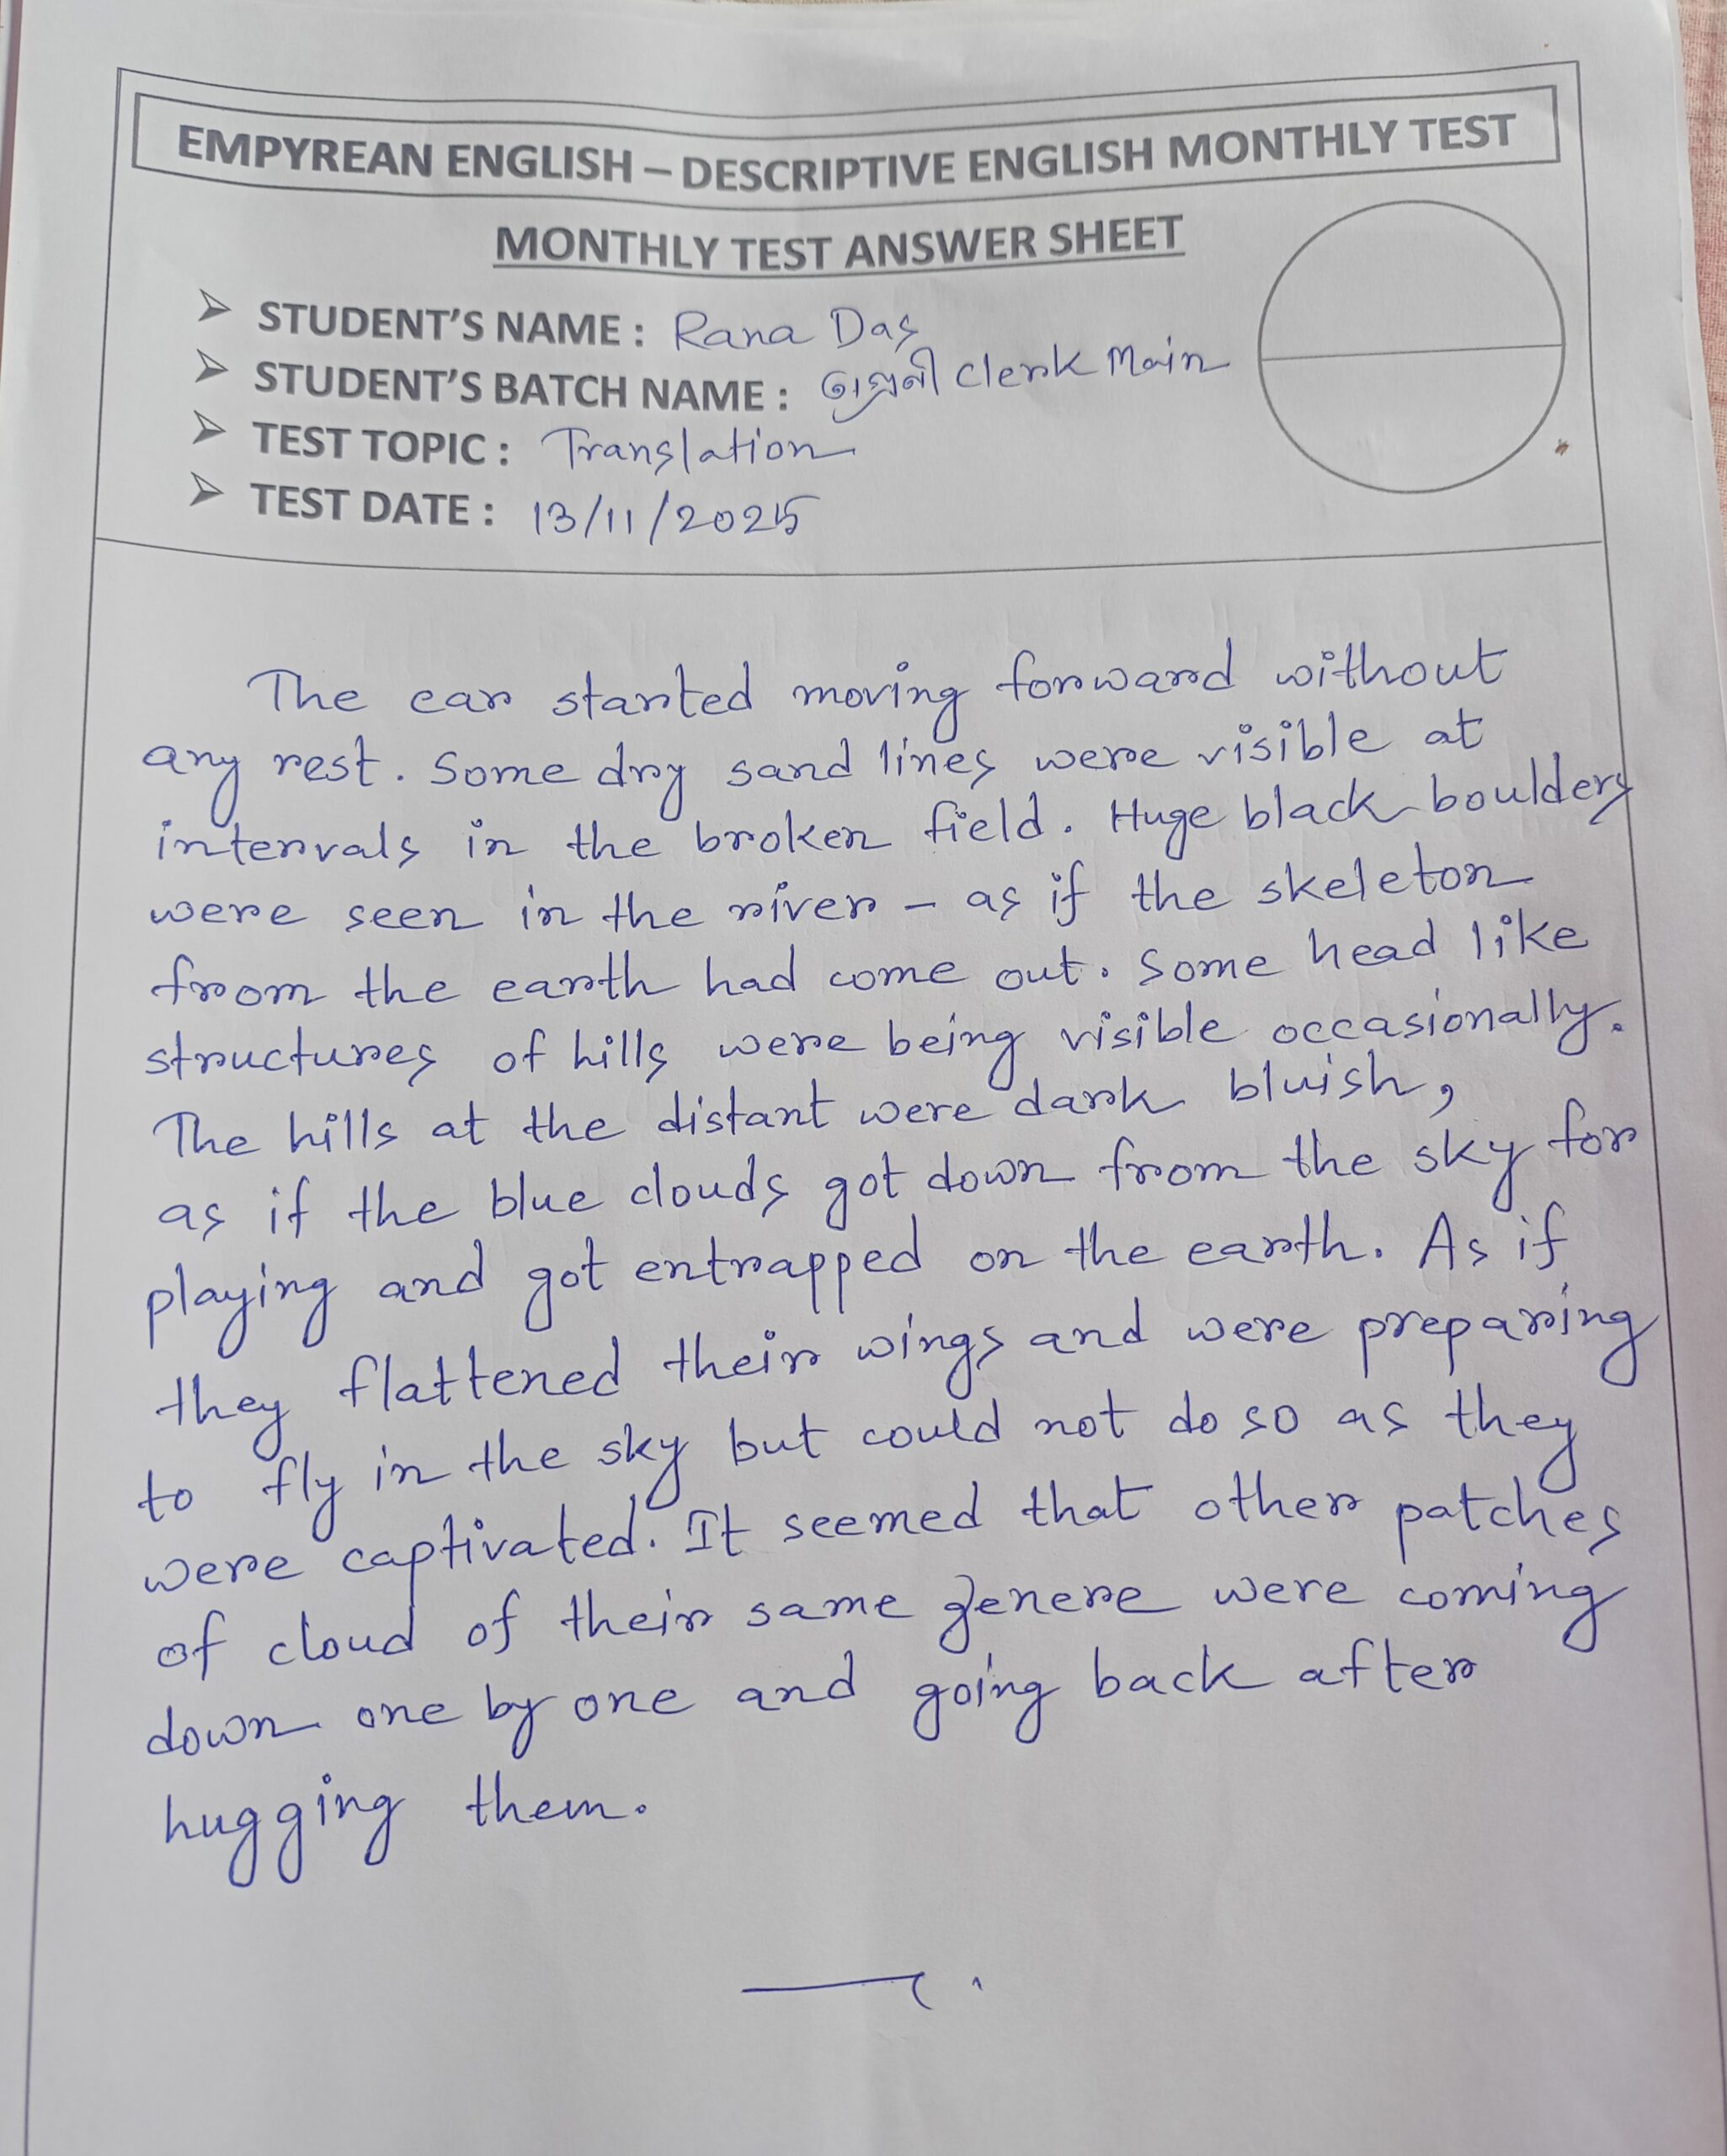 EMPYREAN ENGLISH – DESCRIPTIVE ENGLISH MONTHLY TEST
MONTHLY TEST ANSWER SHEET
➢ STUDENT'S NAME : Rana Das
➢ STUDENT'S BATCH NAME : Clerk Main
➢ TEST TOPIC : Translation
➢ TEST DATE : 13/11/2025
The car started moving forward without
any rest. Some dry sand lines were visible at
intervals in the broken field. Huge black boulders
were seen in the river – as if the skeleton
from the earth had come out. Some head like
structures of hills were being visible occasionally.
The hills at the distant were dark bluish,
as if the blue clouds got down from the sky for
playing and got entrapped on the earth. As if
they flattened their wings and were preparing
to fly in the sky but could not do so as they
were captivated. It seemed that other patches
of cloud of their same genere were coming
down one by one and going back after
hugging them.